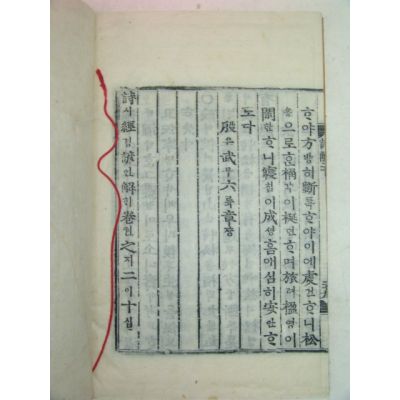 ᄒᆞ야方방혀斲착ᄒᆞ야이에虔건ᄒᆞ니松
숑으로ᄒᆞᆫ桷각이梴쳔ᄒᆞ며旅려楹영이
閑한ᄒᆞ니寢침이成셩흠애심히安안ᄒᆞ
도다
殷은武무六륙章쟝
詩시經경諺언解ᄒᆡ卷권之지二이十십